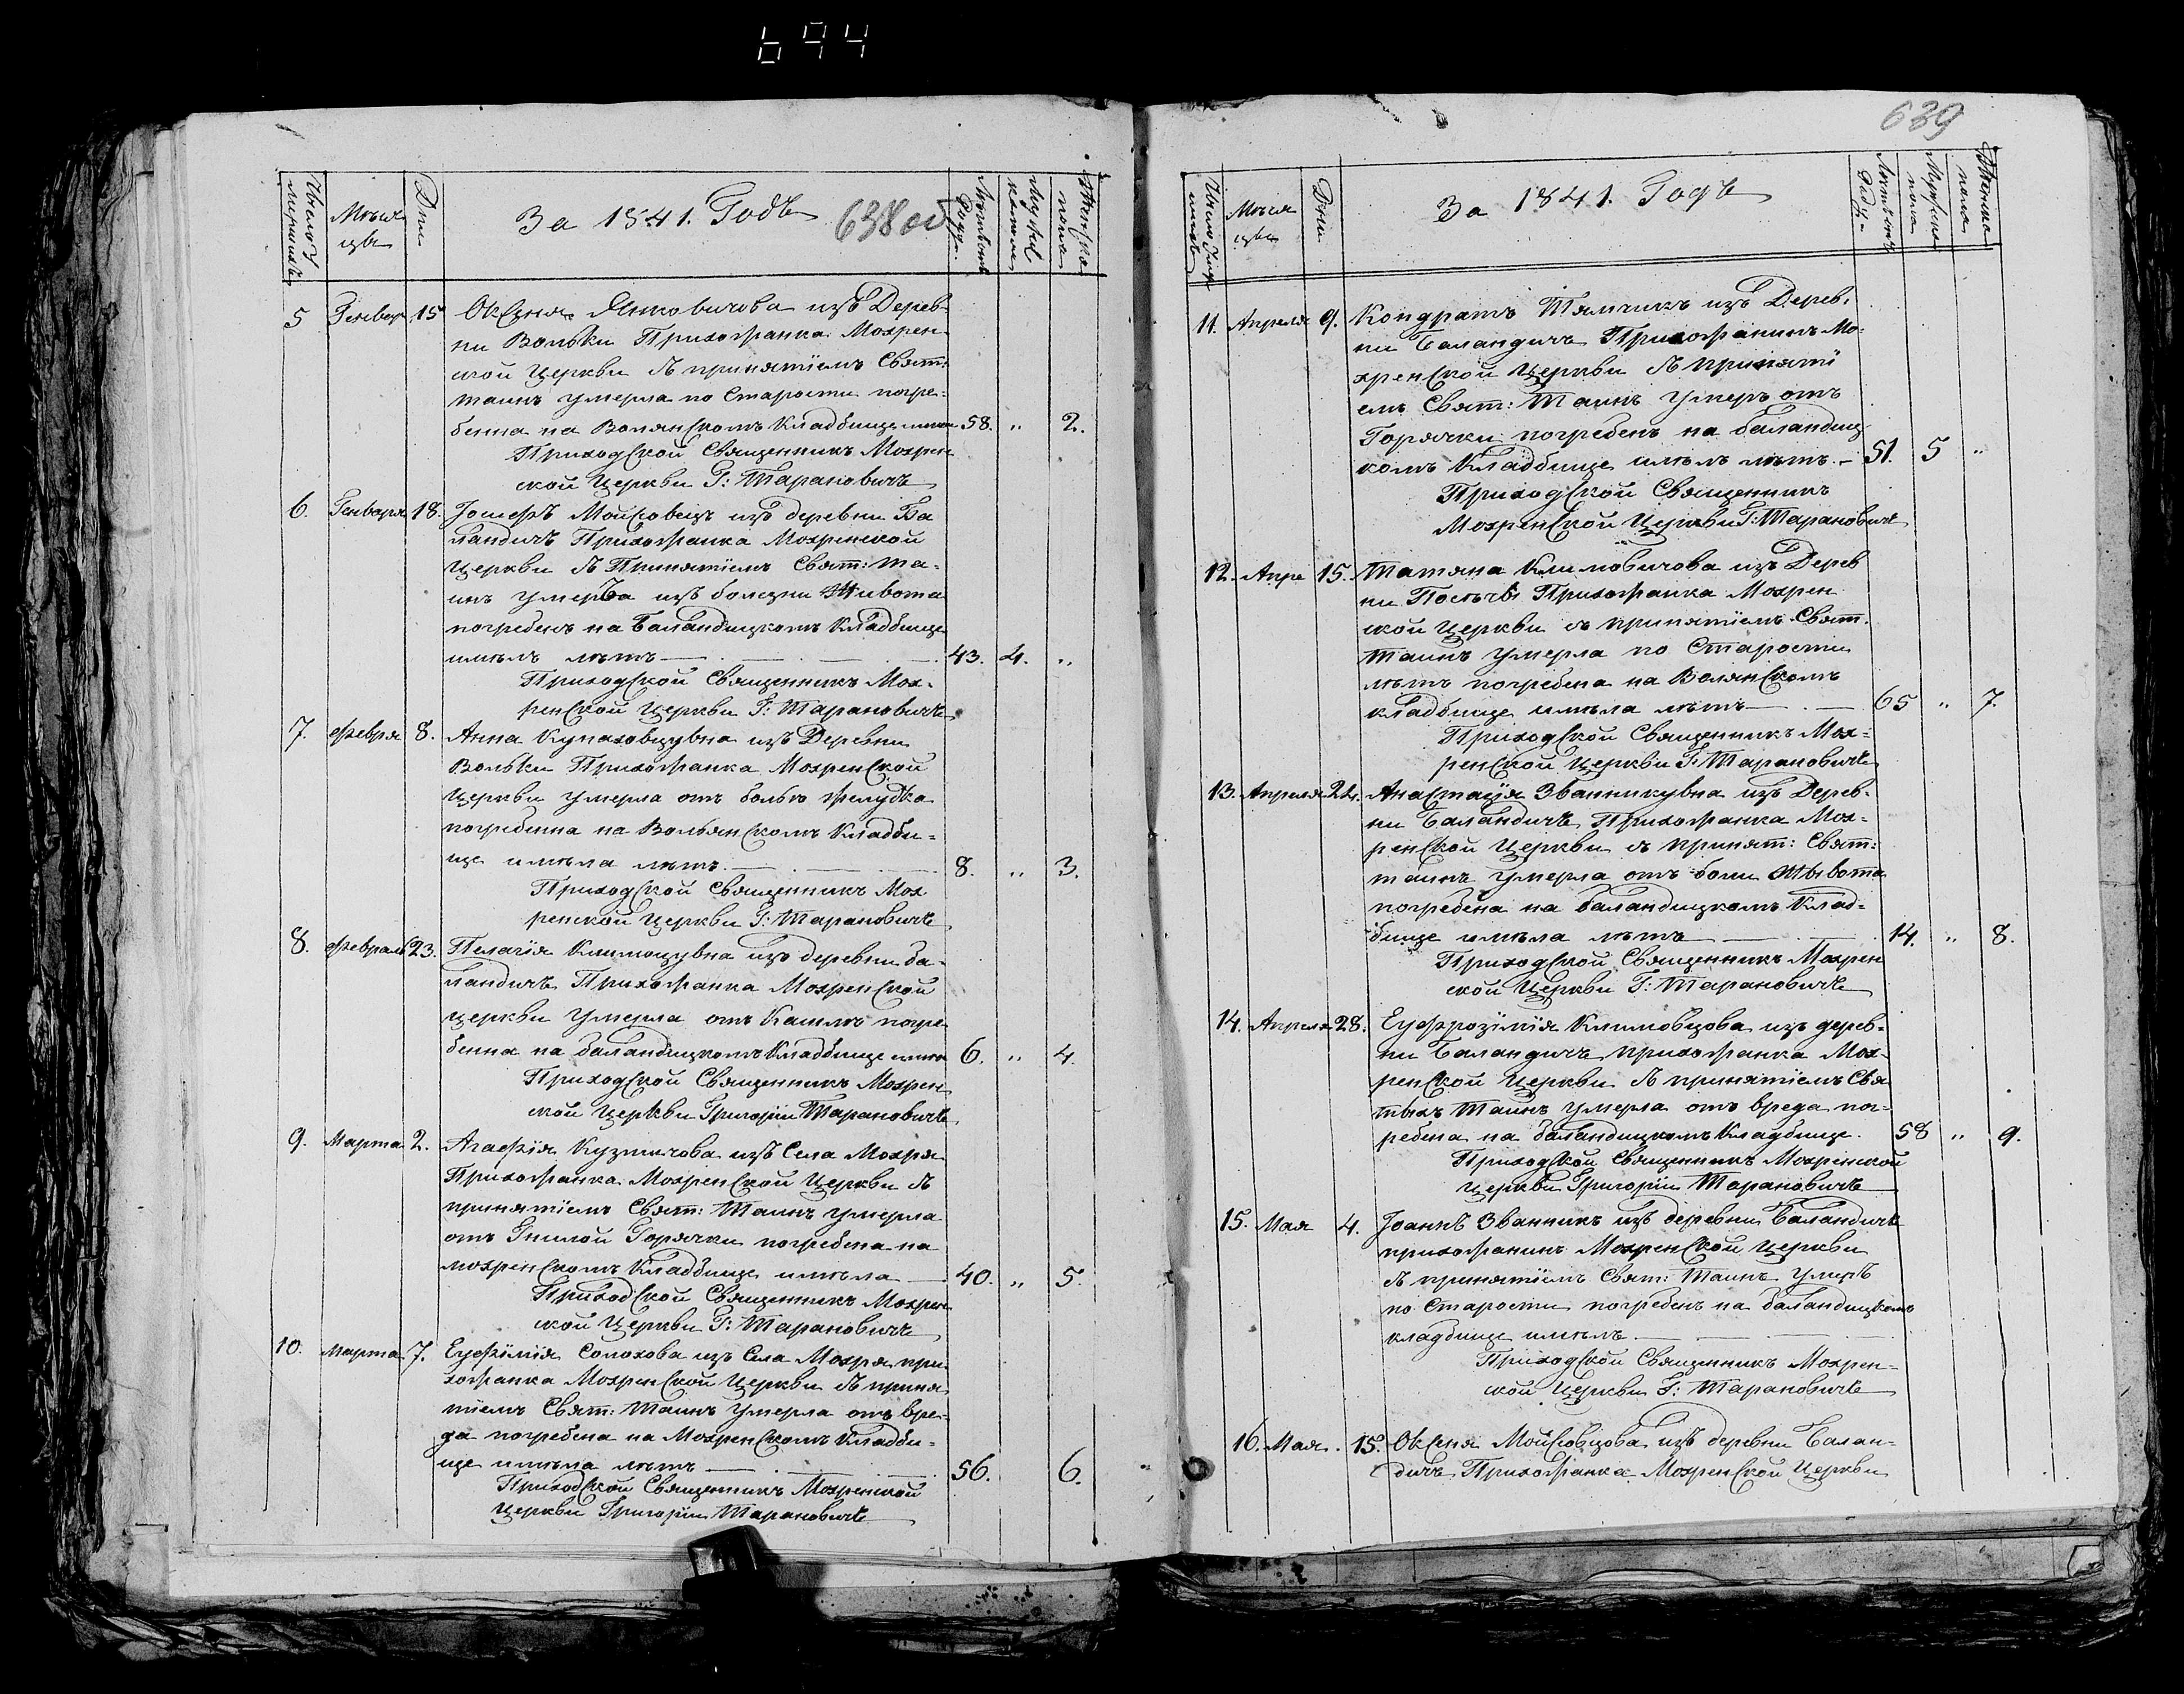 694
Число Умершихъ
Мѣся
цы
Дни
За 1841. Годъ 638 об
Женска
пола
5 Генвар 15 Оксеня Янковичова изъ Дерев-
ни Вольки Прихожанка Мохрен-
ской Церкви съ принятіемъ Свят:
таинъ умерла по Старости погре-
бенна на Волянскомъ Кладбище имѣ 58. „ 2.
Приходской Священникъ Мохрен
ской Церкви Г: Тарановичъ
6. Генваря 18. Іосифъ Мойсовецъ изъ деревни Ба
ландичъ Прихожанка Мохренской
Церкви съ Принятіемъ Свят: та-
инъ умерла изъ болезни Живота
погребенъ на Баландицкомъ Кладбище
имѣлъ лѣтъ 43. 4. „
Приходской Священникъ Мох-
ренской Церкви Г: Тарановичъ
7. Февря 8. Анна Кунаховцувна изъ Деревни
Вольки Прихожанка Мохренской
Церкви умерла отъ болю желудка
погребенна на Вольянскомъ Кладби-
ще имѣла лѣтъ 8. „ 3.
Приходской Священникъ Мох
ренской Церкви Г: Тарановичъ
8. Февраль 23. Пелагія Климоцувна изъ деревни ба-
ландичъ Прихожанка Мохренской
церкви умерла отъ Кашлю погре
бенна на баландицкомъ Кладбище имѣ 6. „ 4.
Приходской Священникъ Мохрен
ской Церкви Григорій Тарановичъ
9. Марта 2. Агафія Кузмичова изъ Села Мохря
Прихожанка Мохренской Церкви съ
принятіемъ Свят: Таинъ умерла
отъ Гнилой Горячки погребена на
мохренскомъ Кладбище имѣла 40. „ 5.
Приходской Священникъ Мохрен
ской Церкви Г: Тарановичъ
10. марта 7. Еуфимія Солохова изъ Села Мохря при
хожанка Мохренской Церкви съ приня
тіемъ Свят: Таинъ умерла отъ вре-
да погребена на Мохренскомъ Кладби-
ще имѣла лѣтъ 56. 6.
Приходской Священникъ Мохренской
Церкви Григорій Тарановичъ
639
Мѣся
цы
Дни
За 1841. Годъ
Мужеска
пола
Женска
пола
11. Апреля 9. Кондратъ Тямчикъ изъ Дерев-
ни Баландичъ Прихожанинъ Мо-
хренской Церкви съ приняті
емъ Свят: Таинъ умеръ отъ
Горячки погребенъ на баландиц
комъ Кладбище имѣлъ лѣтъ 51. 5 „
Приходской Священникъ
Мохренской Церкви Г: Тарановичъ
12. Апре 15. Татяна Климовичова изъ Дерев
ни Посѣчы Прихожанка Мохрен
ской Церкви съ принятіемъ Свят.
Таинъ умерла по Старости
лѣтъ погребена на Волянскомъ
кладбище имѣла лѣтъ 65 „ 7.
Приходской Священникъ Мох-
ренской Церкви Г: Тарановичъ
13. Апреля 24. Анастація Званникувна изъ Дерев-
ни Баландичъ Прихожанка Мох-
ренской Церкви съ принят: Свят:
таинъ умерла отъ боли Жывота
погребена на баландицкомъ Клад-
бище имѣла лѣтъ 14. „ 8.
Приходской Священникъ Мохрен
ской Церкви Г: Тарановичъ
14. Апреля 28. Еуфрозімія Климовцова изъ дерев-
ни Баландичъ прихожанка Мох-
ренской Церкви съ принятіемъ Свя
тыхъ Таинъ умерла отъ вреда пог-
ребена на баландицкомъ Кладбище. 58 „ 9.
Приходской Священникъ Мохренской
Церкви Григорій Тарановичъ
15. Мая 4. Іоаннъ Званникъ изъ деревни Баландичъ
прихожанинъ Мохренской Церкви
съ принятіемъ Свят: Таинъ умеръ
по Старости погребенъ на баландицкомъ
кладбище имѣлъ
Приходской Священникъ Мохрен-
ской Церкви Г: Тарановичъ
16. Мая. 15. Оксеня Мойсовцова изъ деревни Балан-
дичъ Прихожанка Мохренской Церкви